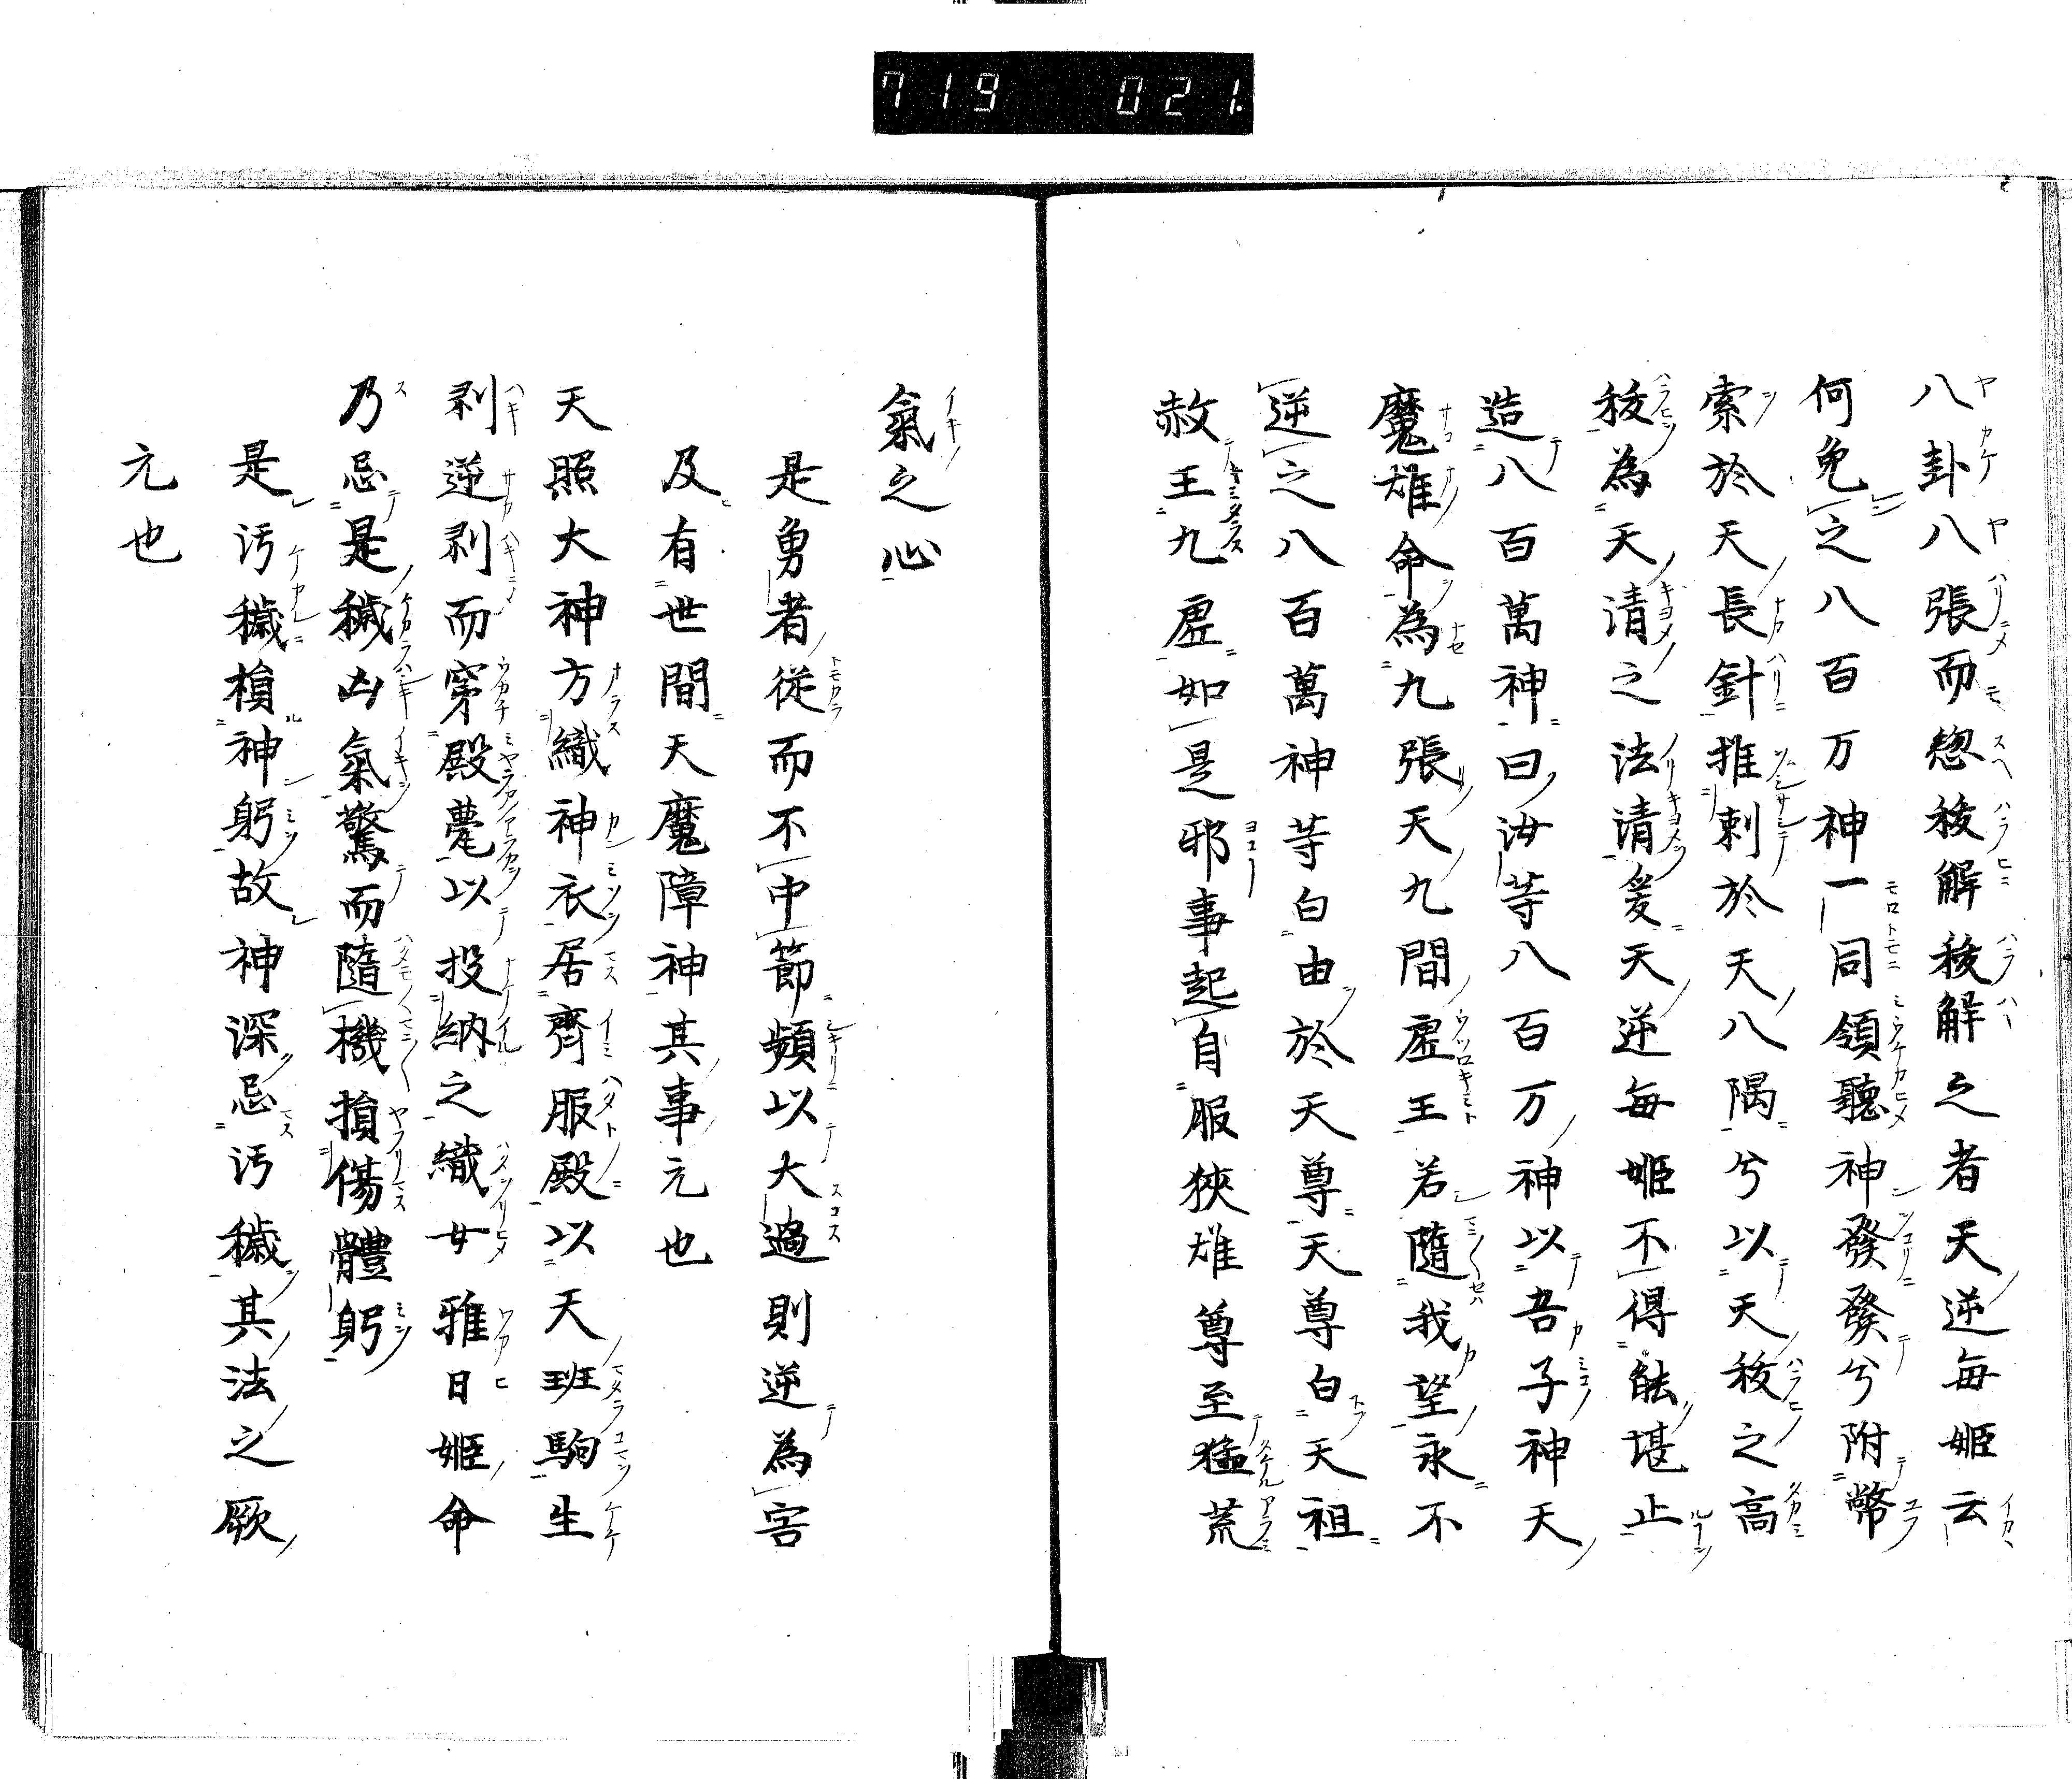 719 021.
八卦八張而惣秡解秡解之者天逆毎姬云
何免之八百万神一同領聽神發發兮附幣
索於天長針推刺於天八隅兮以天秡之高
秡為天清之法清爰天逆毎姬不得能堪止
造八百萬神曰汝等八百万神以吾子神天
魔雄命為九張天九間虛王若隨我望永不
逆之八百萬神等白由於天尊天尊白天祖
赦王九虛如是邪事起自服狹雄尊至猛荒
氣之心
是勇者從而不中節頻以大過則逆為害
及有世間天魔障神其事元也
天照大神方織神衣居齊服殿以天班駒生
剥逆剥而穿殿甍以投納之織女雅日姬命
乃忌是穢凶氣驚而隨機損傷體躬
是汚穢損神躬故神深忌汚穢其法之厥
元也